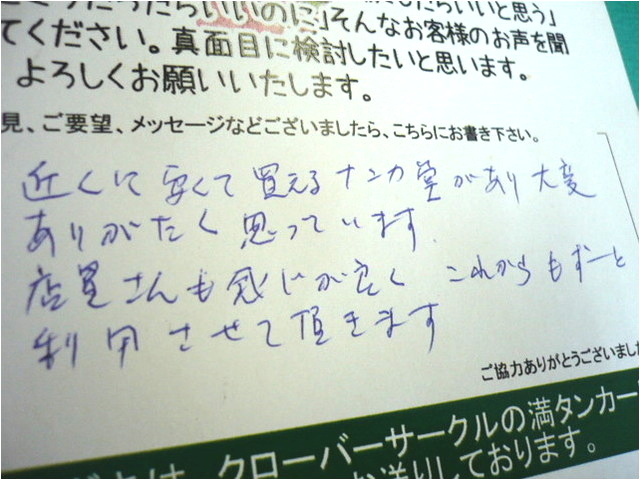 らいいのに」そんなお客様のお声を聞
てください。真面目に検討したいと思います。
よろしくお願いいたします。
見、ご要望、メッセージなどございましたら、こちらにお書き下さい。
近くに安くて買えるナンカ堂があり大変
ありがたく思っています.
店員さんも感じが良く これからもずーと
利用させて頂きます
ご協力ありがとうございました
クローバーサークルの満タンカー
お送りしております。